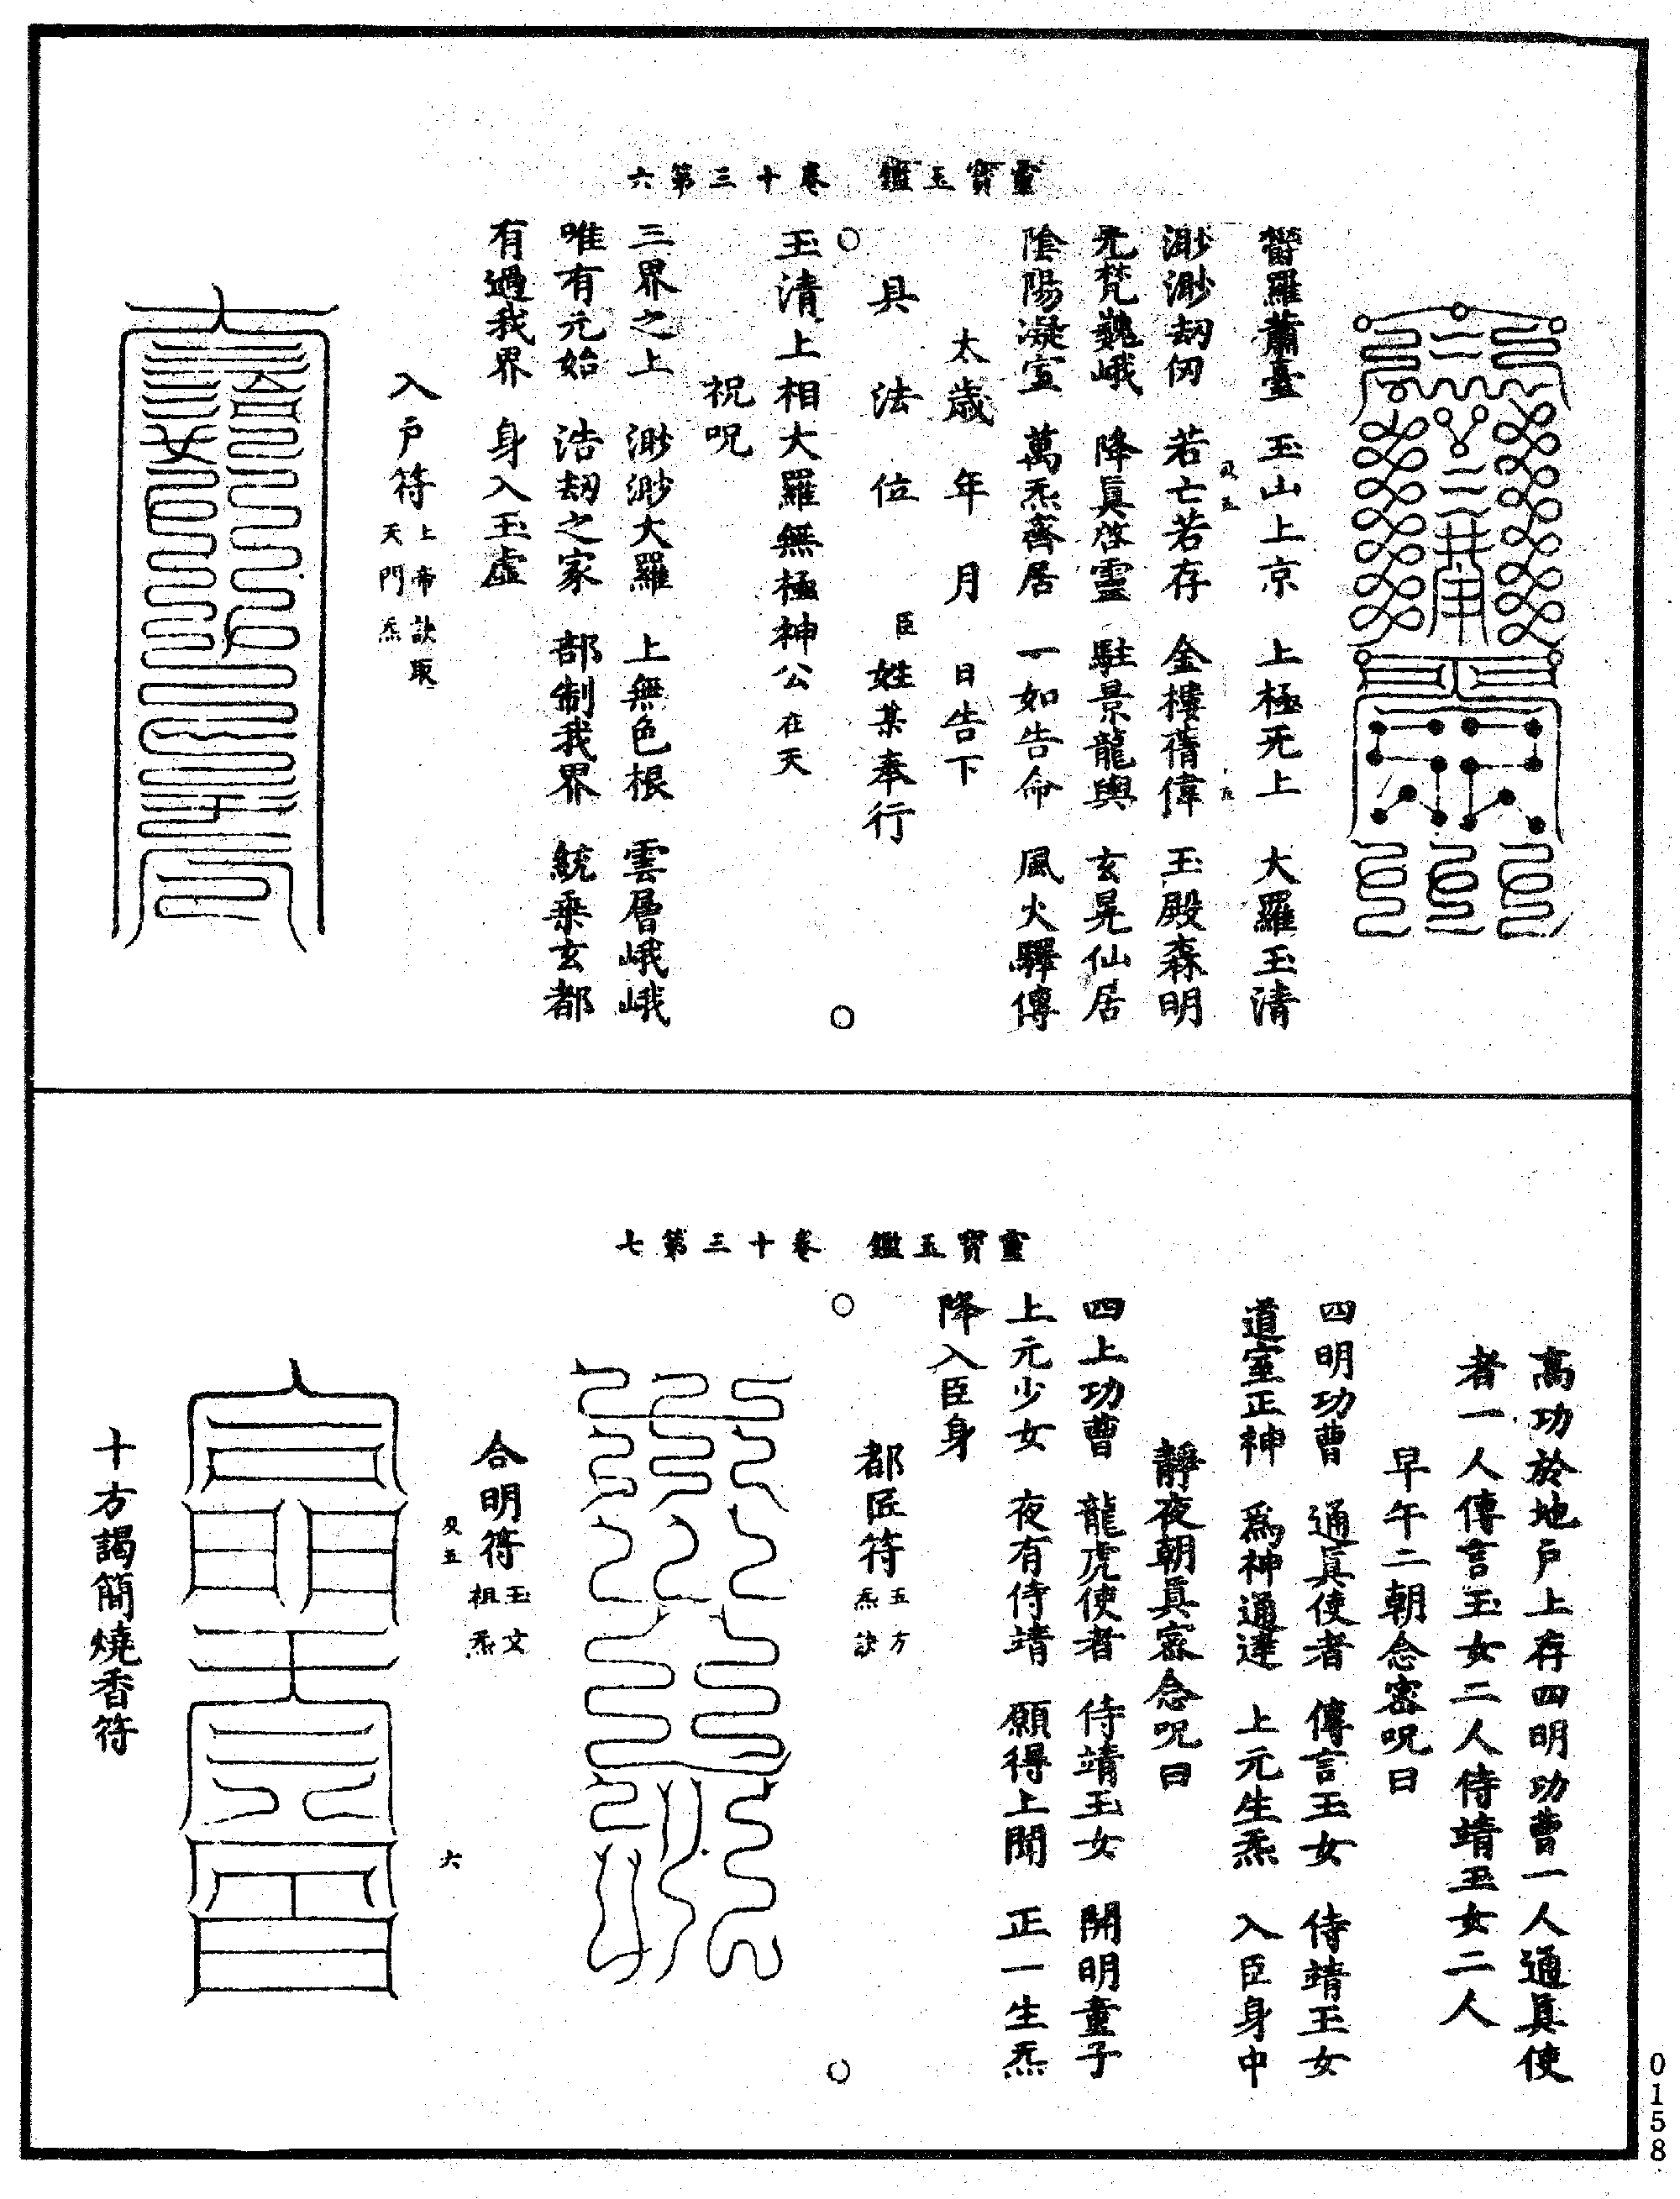 靈寶玉鑑　卷十三第六
鬱羅蕭臺　玉山上京　上極无上　大羅玉清
渺渺劫仞　若亡若存　金樓蒨偉　玉殿森明
无梵巍峨　降眞啓靈　駐景龍輿　玄晃仙居
陰陽凝宣　萬炁齊居　一如告命　風火驛傳
太歲　年　月　日告下
具　法　位　臣姓某奉行
玉清上相大羅無極神公在天
祝呪
三界之上　渺渺大羅　上無色根　雲層峨峨
唯有元始　浩劫之家　部制我界　統乘玄都
有過我界　身入玉虛
入戶符上帝訣取
天門炁
靈寶玉鑑　卷十三第七
高功於地戶上存四明功曹一人通眞使
者一人傳言玉女二人侍靖玉女二人
早午二朝念密呪曰
四明功曹　通眞使者　傳言玉女　侍靖玉女
道室正神　爲神通達　上元生炁　入臣身中
靜夜朝眞密念呪曰
四上功曹　龍虎使者　侍靖玉女　開明童子
上元少女　夜有侍靖　願得上聞　正一生炁
降入臣身
都匠符五方
炁訣
合明符玉文
祖炁
六
十方謁簡燒香符
0158